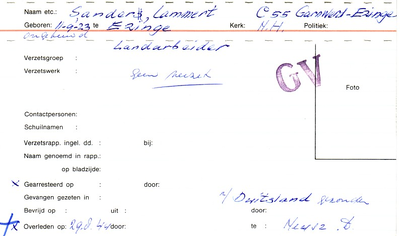 Naam etc.: Sanders, Lammert C 55 Garnwerd-Ezinge
Geboren: 11-9-23 te Ezinge Kerk: N.H. Politiek:
ongehuwd
Landarbeider
Verzetsgroep :
Verzetswerk : geen verzet
GV
Foto
Contactpersonen:
Schuilnamen :
Verzetsrapp. ingel. dd. : bij:
Naam genoemd in rapp.:
op bladzijde:
x Gearresteerd op : door:
Gevangen gezeten in : n/ Duitsland gezonden
Bevrijd op : uit : door:
x Overleden op: door: te :